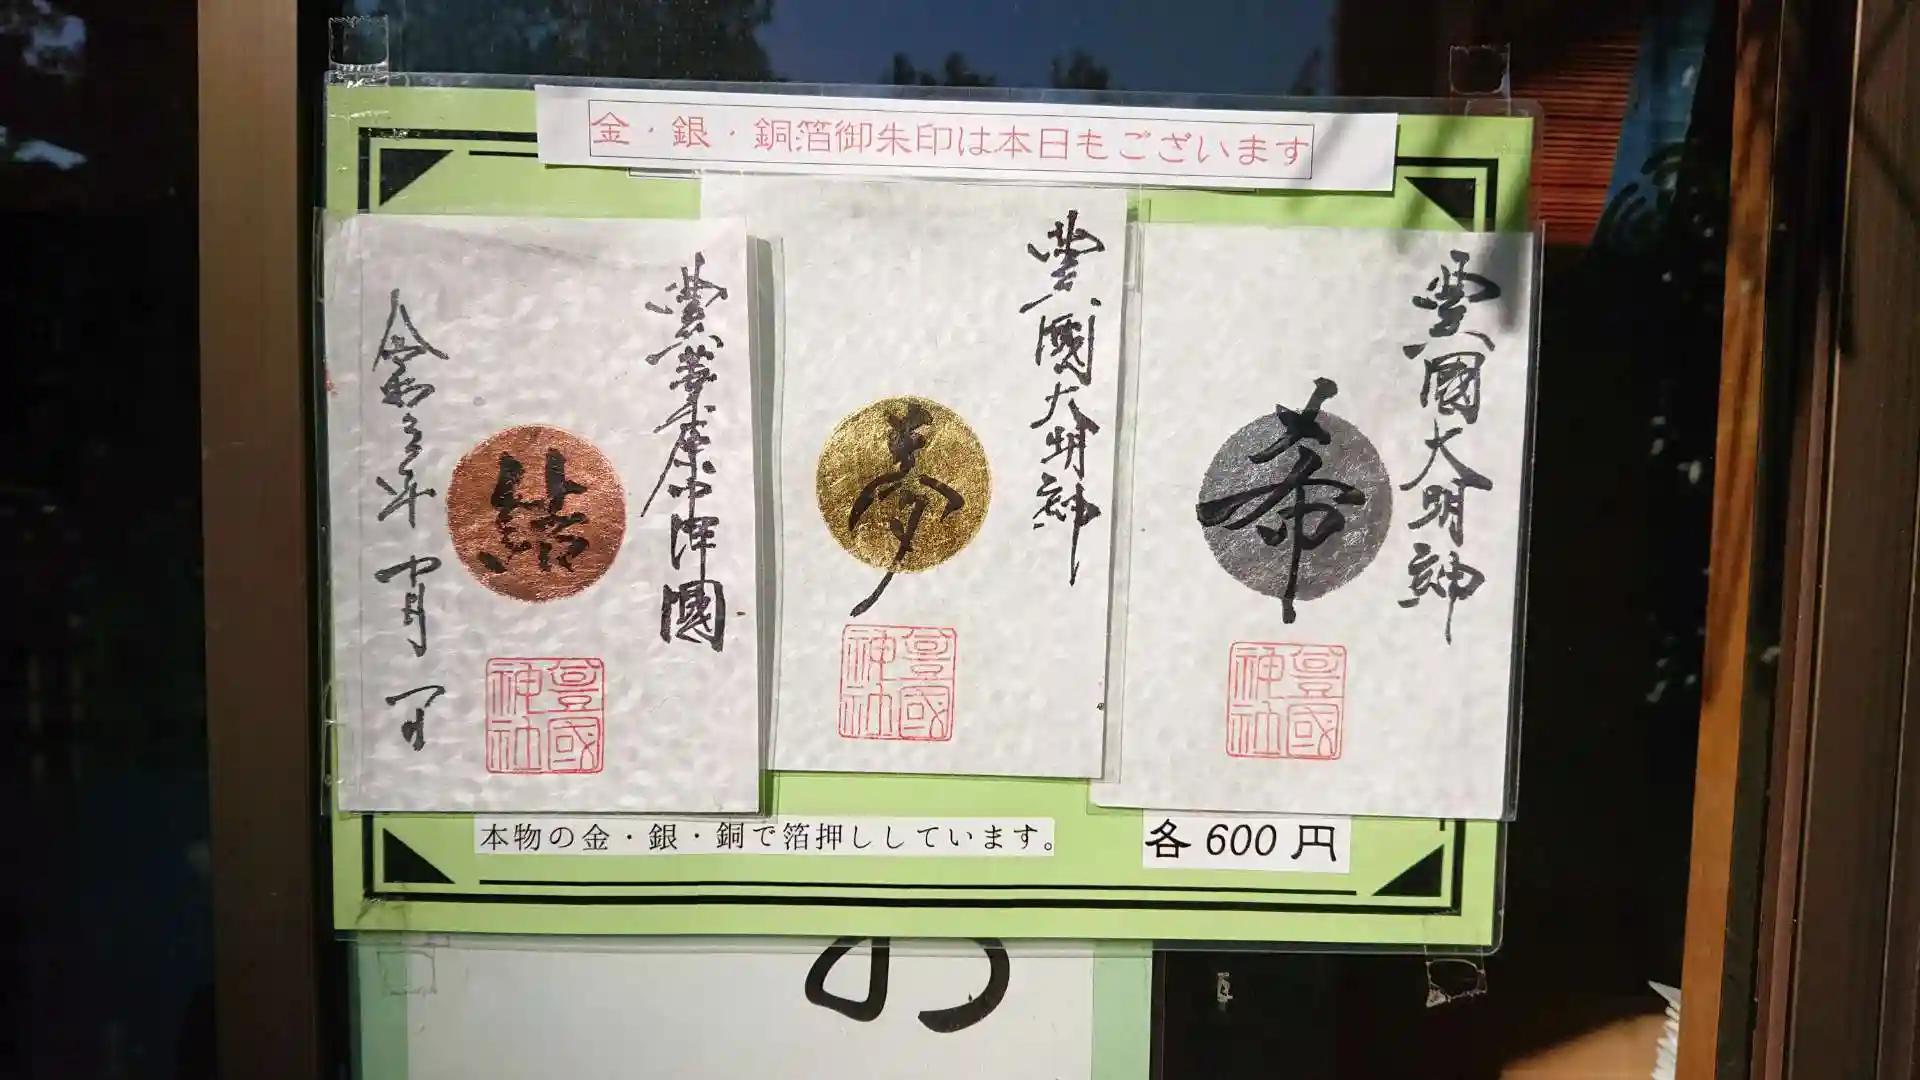 金・銀・銅箔御朱印は本日もございます
豊國大明神
希
豊國神社
豊國大明神
夢
豊國神社
豊葦原中津國
結
令和三年 月 日
豊國神社
本物の金・銀・銅で箔押ししています。
各600円